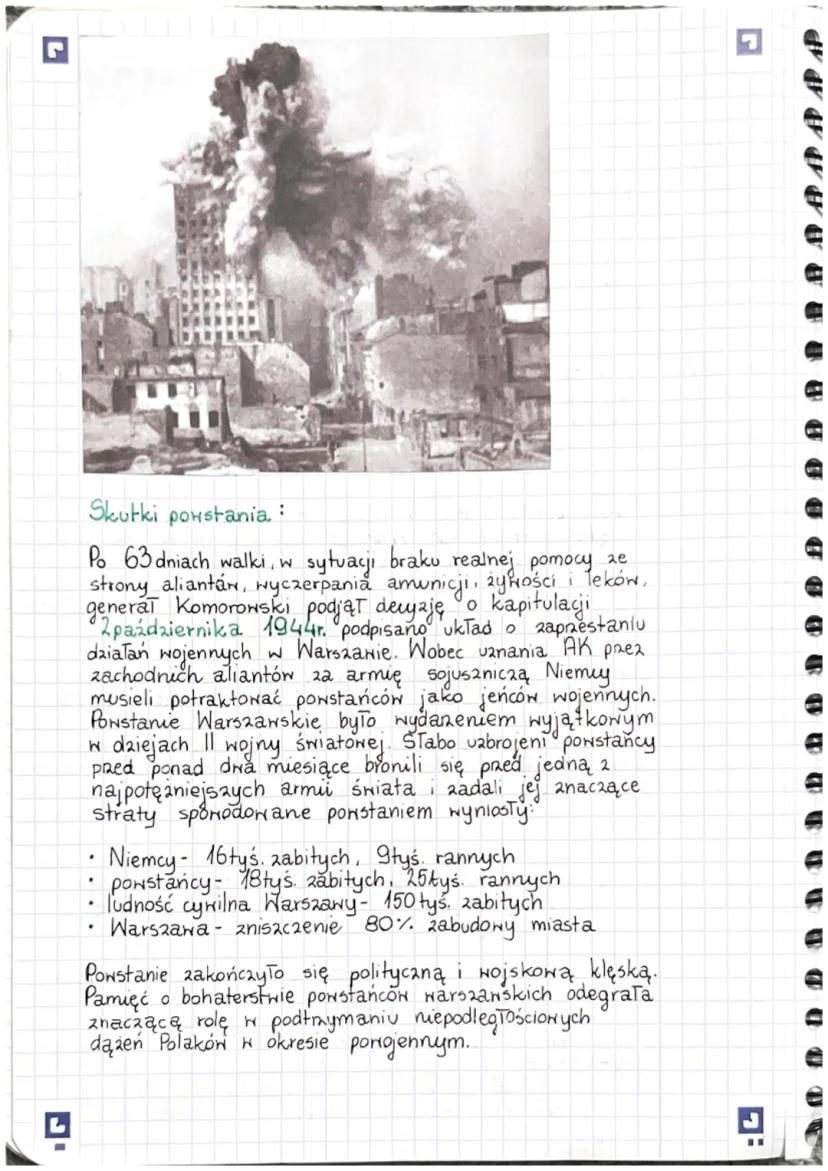 Skutki powstania:
Po 63 dniach walki, w sytuacji braku realnej pomocy ze
strony aliantów, wyczerpania amunicji, żywności i leków,
generał Komorowski podjął decyzję o kapitulacji
2 października 1944r. podpisano układ o zaprzestaniu
działań wojennych w Warszawie. Wobec uznania AK przez
zachodnich aliantów za armię sojuszniczą Niemcy
musieli potraktować powstańców jako jeńców wojennych.
Powstanie Warszawskie było wydarzeniem wyjątkowym
w dziejach II wojny światowej. Słabo uzbrojeni powstańcy
przed ponad dwa miesiące bronili się przed jedną z
najpotężniejszych armii świata i zadali jej znaczące
straty spowodowane powstaniem wyniosły:
• Niemcy - 16 tyś. zabitych, 9 tyś. rannych
• powstańcy - 18 tyś. zabitych, 25 tyś. rannych
• ludność cywilna Warszawy - 150 tyś. zabitych
• Warszawa - zniszczenie 80% zabudowy miasta
Powstanie zakończyło się polityczną i wojskową klęską.
Pamięć o bohaterstwie powstańców warszawskich odegrała
znaczącą rolę w podtrzymaniu niepodległościowych
dążeń Polaków w okresie powojennym.